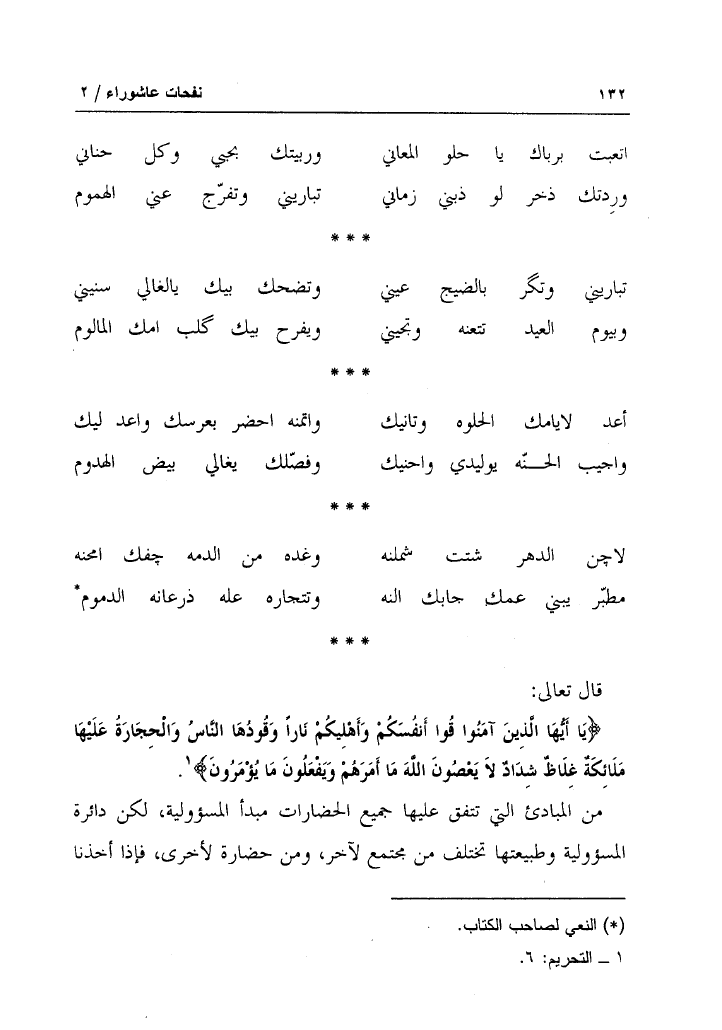 ١٣٢ نفحات عاشوراء / ٢
اتعبت برباك يا حلو المعاني وربيتك بحبي وكل حناني
وردتك ذخر لو ذبني زماني تباريني وتفرّج عني الهموم
* * *
تباريني وتگر بالضيج عيني وتضحك بيك يالغالي سنيني
وبيوم العيد تتعنه وتجيني ويفرح بيك گلب امك المالوم
* * *
أعد لايامك الحلوه وتانيك واتمنه احضر بعرسك واعد ليك
واجيب الحـــنّه يوليدي واحنيك وفصّلك يغالي بيض الهدوم
* * *
لاچن الدهر شتت شملنه وغده من الدمه چفك امحنه
مطبّر يبني عمك جابك النه وتتجاره عله ذرعانه الدموم*
* * *
قال تعالى:
﴿يَا أَيُّهَا الَّذِينَ آمَنُوا قُوا أَنفُسَكُمْ وَأَهْلِيكُمْ نَاراً وَقُودُهَا النَّاسُ وَالْحِجَارَةُ عَلَيْهَا
مَلَائِكَةٌ غِلَاظٌ شِدَادٌ لاَ يَعْصُونَ اللَّهَ مَا أَمَرَهُمْ وَيَفْعَلُونَ مَا يُؤْمَرُونَ﴾١.
من المبادئ التي تتفق عليها جميع الحضارات مبدأ المسؤولية، لكن دائرة
المسؤولية وطبيعتها تختلف من مجتمع لآخر، ومن حضارة لأخرى، فإذا أخذنا
(*) النعي لصاحب الكتاب.
١ ــ التحريم: ٦.